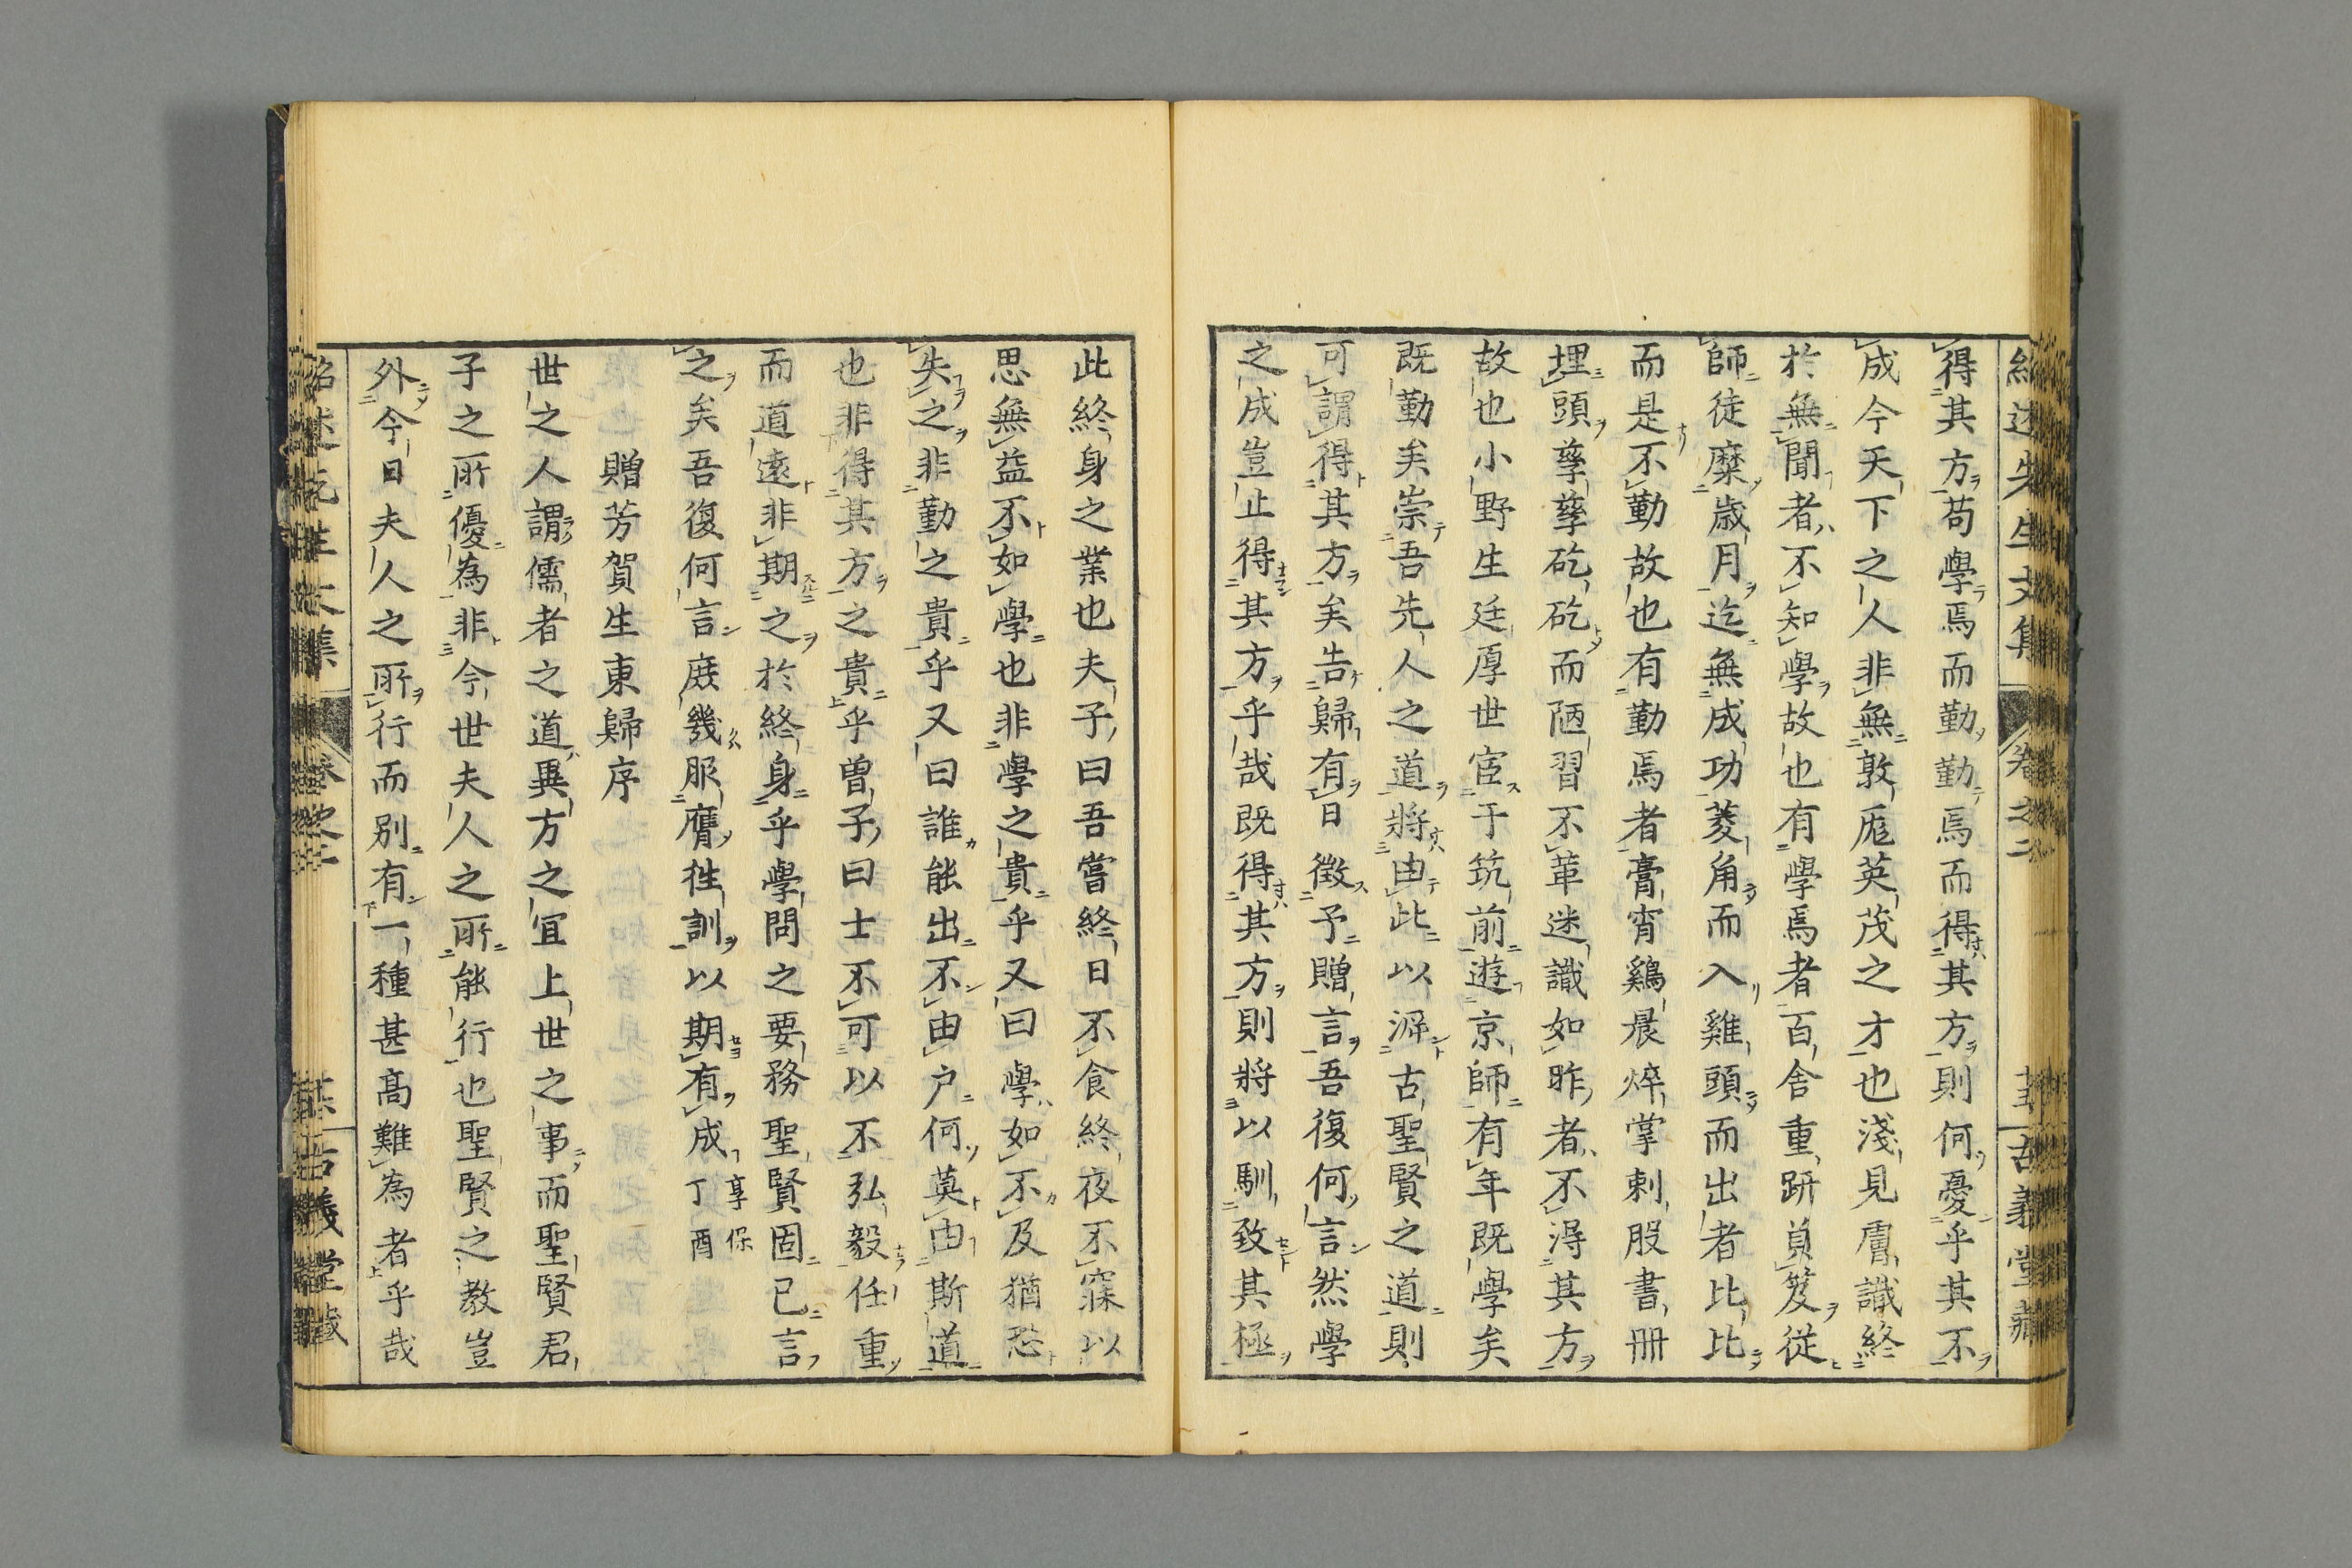 紹述先生文集 卷之 古義堂藏
得其方苟學焉而勤勤焉而得其方則何憂乎其不
成今天下之人非無敦庬英茂之才也淺見膚識終
於無聞者不知學故也有學焉者百舍重趼負笈從
師徒糜歲月迄無成功菱角而入雞頭而出者比比
而是不勤故也有勤焉者膏宵鷄晨焠掌刺股書冊
埋頭孳孳矻矻而陋習不革迷識如昨者不得其方
故也小野生廷厚世宦于筑前遊京師有年既學矣
既勤矣崇吾先人之道將由此以泝古聖賢之道則
可謂得其方矣告歸有日徵予贈言吾復何言然學
之成豈止得其方乎哉既得其方則將以馴致其極
此終身之業也夫子曰吾嘗終日不食終夜不寐以
思無益不如學也非學之貴乎又曰學如不及猶恐
失之非勤之貴乎又曰誰能出不由戶何莫由斯道
也非得其方之貴乎曾子曰士不可以不弘毅任重
而道遠非期之於終身乎學問之要務聖賢固已言
之矣吾復何言庶幾服膺往訓以期有成 享保丁酉
贈芳賀生東歸序
世之人謂儒者之道異方之宜上世之事而聖賢君
子之所優為非今世夫人之所能行也聖賢之教豈
外今日夫人之所行而別有一種甚高難為者乎哉
紹述先生文集 卷之 古義堂藏